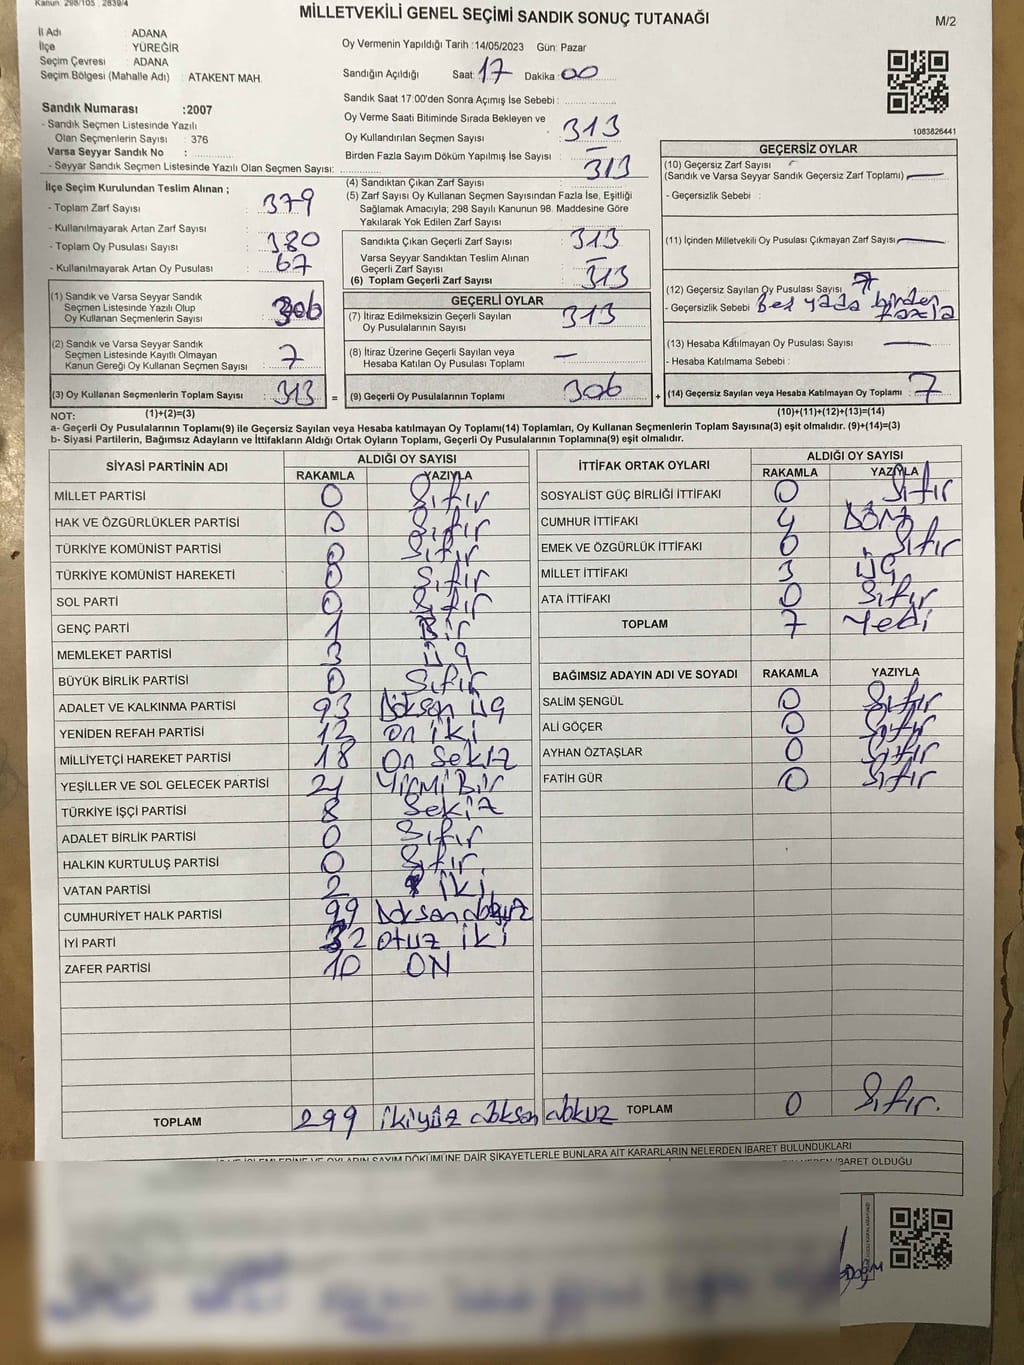 Kanun: 298/105 , 2839/4
MİLLETVEKİLİ GENEL SEÇİMİ SANDIK SONUÇ TUTANAĞI
M/2
İl Adı : ADANA
İlçe : YÜREĞİR
Seçim Çevresi : ADANA
Seçim Bölgesi (Mahalle Adı) : ATAKENT MAH.
Oy Vermenin Yapıldığı Tarih :14/05/2023 Gün: Pazar
Sandığın Açıldığı Saat: 17 Dakika: 00
Sandık Saat 17:00'den Sonra Açımış İse Sebebi :
Oy Verme Saati Bitiminde Sırada Bekleyen ve
Oy Kullandırılan Seçmen Sayısı : 313
Birden Fazla Sayım Döküm Yapılmış İse Sayısı : —
1083826441
Sandık Numarası :2007
- Sandık Seçmen Listesinde Yazılı
Olan Seçmenlerin Sayısı : 376
Varsa Seyyar Sandık No :
- Seyyar Sandık Seçmen Listesinde Yazılı Olan Seçmen Sayısı:
İlçe Seçim Kurulundan Teslim Alınan ;
- Toplam Zarf Sayısı : 379
- Kullanılmayarak Artan Zarf Sayısı :
- Toplam Oy Pusulası Sayısı : 380
- Kullanılmayarak Artan Oy Pusulası : 67
(1) Sandık ve Varsa Seyyar Sandık
Seçmen Listesinde Yazılı Olup
Oy Kullanan Seçmenlerin Sayısı : 306
(2) Sandık ve Varsa Seyyar Sandık
Seçmen Listesinde Kayıtlı Olmayan
Kanun Gereği Oy Kullanan Seçmen Sayısı : 7
(3) Oy Kullanan Seçmenlerin Toplam Sayısı : 313 =
(4) Sandıktan Çıkan Zarf Sayısı : 313
(5) Zarf Sayısı Oy Kullanan Seçmen Sayısından Fazla İse, Eşitliği
Sağlamak Amacıyla; 298 Sayılı Kanunun 98. Maddesine Göre
Yakılarak Yok Edilen Zarf Sayısı :
Sandıkta Çıkan Geçerli Zarf Sayısı : 313
Varsa Seyyar Sandıktan Teslim Alınan
Geçerli Zarf Sayısı : —
(6) Toplam Geçerli Zarf Sayısı : 313
GEÇERLİ OYLAR
(7) İtiraz Edilmeksizin Geçerli Sayılan
Oy Pusulalarının Sayısı : 313
(8) İtiraz Üzerine Geçerli Sayılan veya
Hesaba Katılan Oy Pusulası Toplamı : —
(9) Geçerli Oy Pusulalarının Toplamı : 306 +
GEÇERSİZ OYLAR
(10) Geçersiz Zarf Sayısı
(Sandık ve Varsa Seyyar Sandık Geçersiz Zarf Toplamı) : —
- Geçersizlik Sebebi :
(11) İçinden Milletvekili Oy Pusulası Çıkmayan Zarf Sayısı : —
(12) Geçersiz Sayılan Oy Pusulası Sayısı : 7
- Geçersizlik Sebebi : Boş yada birden fazla
(13) Hesaba Katılmayan Oy Pusulası Sayısı : —
- Hesaba Katılmama Sebebi :
(14) Geçersiz Sayılan veya Hesaba Katılmayan Oy Toplamı : 7
NOT: (1)+(2)=(3) (10)+(11)+(12)+(13)=(14)
a- Geçerli Oy Pusulalarının Toplamı(9) ile Geçersiz Sayılan veya Hesaba katılmayan Oy Toplamı(14) Toplamları, Oy Kullanan Seçmenlerin Toplam Sayısına(3) eşit olmalıdır. (9)+(14)=(3)
b- Siyasi Partilerin, Bağımsız Adayların ve İttifakların Aldığı Ortak Oyların Toplamı, Geçerli Oy Pusulalarının Toplamına(9) eşit olmalıdır.
SİYASİ PARTİNİN ADI ALDIĞI OY SAYISI
RAKAMLA YAZIYLA
MİLLET PARTİSİ 0 Sıfır
HAK VE ÖZGÜRLÜKLER PARTİSİ 0 Sıfır
TÜRKİYE KOMÜNİST PARTİSİ 0 Sıfır
TÜRKİYE KOMÜNİST HAREKETİ 0 Sıfır
SOL PARTİ 0 Sıfır
GENÇ PARTİ 1 Bir
MEMLEKET PARTİSİ 3 üç
BÜYÜK BİRLİK PARTİSİ 0 Sıfır
ADALET VE KALKINMA PARTİSİ 93 Doksan üç
YENİDEN REFAH PARTİSİ 12 on iki
MİLLİYETÇİ HAREKET PARTİSİ 18 On Sekiz
YEŞİLLER VE SOL GELECEK PARTİSİ 21 Yirmi Bir
TÜRKİYE İŞÇİ PARTİSİ 8 Sekiz
ADALET BİRLİK PARTİSİ 0 Sıfır
HALKIN KURTULUŞ PARTİSİ 0 Sıfır
VATAN PARTİSİ 2 iki
CUMHURİYET HALK PARTİSİ 99 Doksan dokuz
İYİ PARTİ 32 otuz iki
ZAFER PARTİSİ 10 ON
TOPLAM 299 ikiyüz doksan dokuz
İTTİFAK ORTAK OYLARI ALDIĞI OY SAYISI
RAKAMLA YAZIYLA
SOSYALİST GÜÇ BİRLİĞİ İTTİFAKI 0 Sıfır
CUMHUR İTTİFAKI 4 DÖRT
EMEK VE ÖZGÜRLÜK İTTİFAKI 0 Sıfır
MİLLET İTTİFAKI 3 üç
ATA İTTİFAKI 0 Sıfır
TOPLAM 7 Yedi
BAĞIMSIZ ADAYIN ADI VE SOYADI RAKAMLA YAZIYLA
SALİM ŞENGÜL 0 Sıfır
ALİ GÖÇER 0 Sıfır
AYHAN ÖZTAŞLAR 0 Sıfır
FATİH GÜR 0 Sıfır
TOPLAM 0 Sıfır.
OYLARIN SAYIM DÖKÜMÜNE DAİR ŞİKAYETLERLE BUNLARA AİT KARARLARIN NELERDEN İBARET BULUNDUKLARI
İBARET OLDUĞU